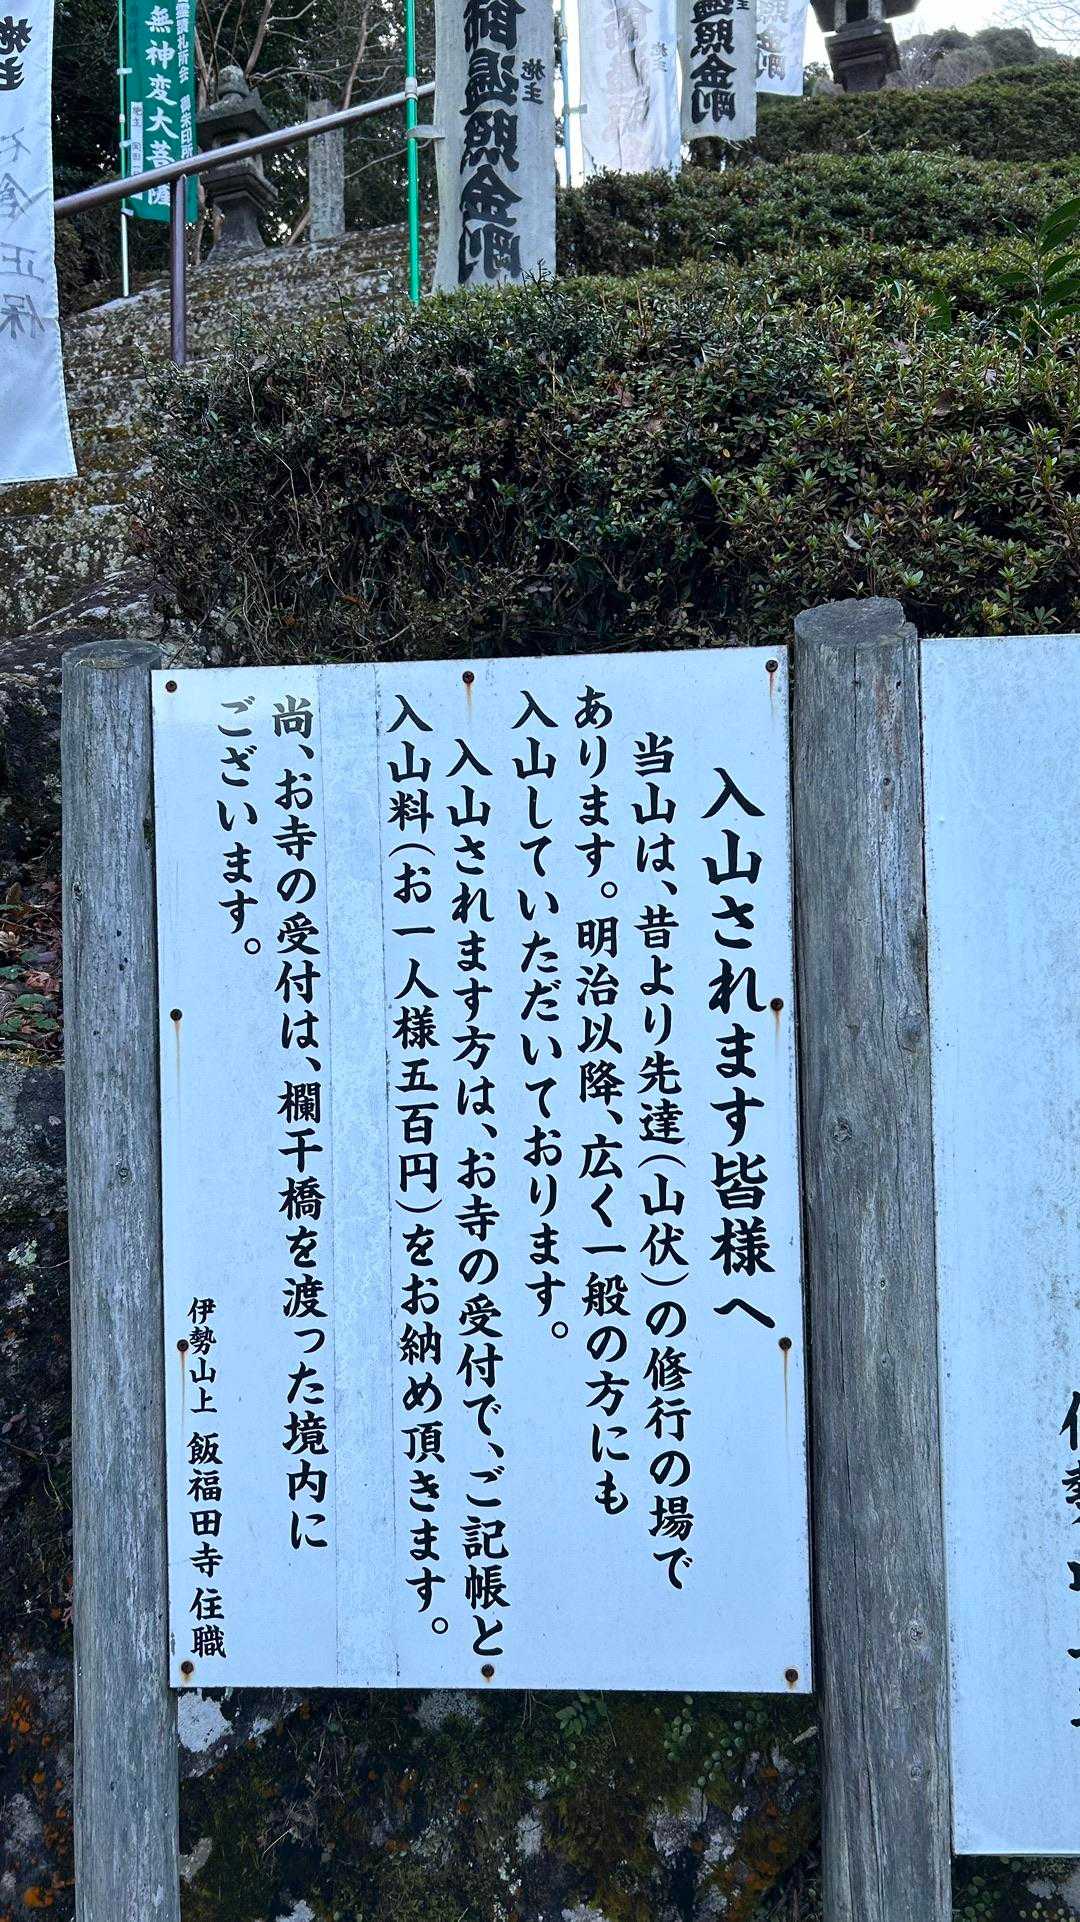 入山されます皆様へ
当山は、昔より先達(山伏)の修行の場で
あります。明治以降、広く一般の方にも
入山していただいております。
入山されます方は、お寺の受付で、ご記帳と
入山料(お一人様五百円)をお納め頂きます。
尚、お寺の受付は、欄干橋を渡った境内に
ございます。
伊勢山上 飯福田寺 住職
施主
正保
無神変大菩薩
霊蹟札所会 御朱印所
師遍照金剛
施主
遍照金剛